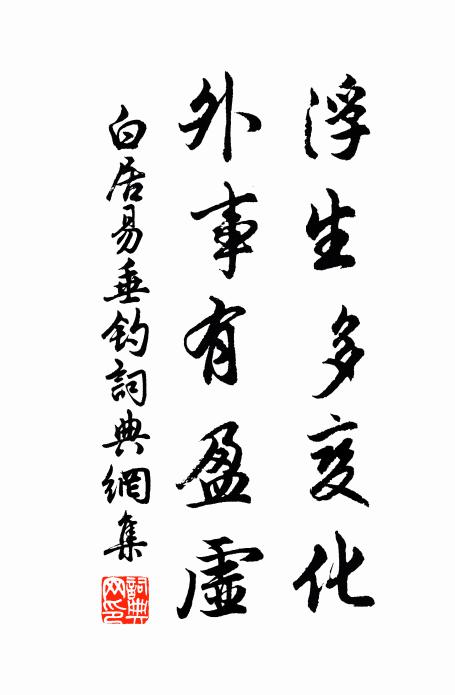 浮生多变化
外事有盈虚
白居易垂钓詞典網集
詞典網印